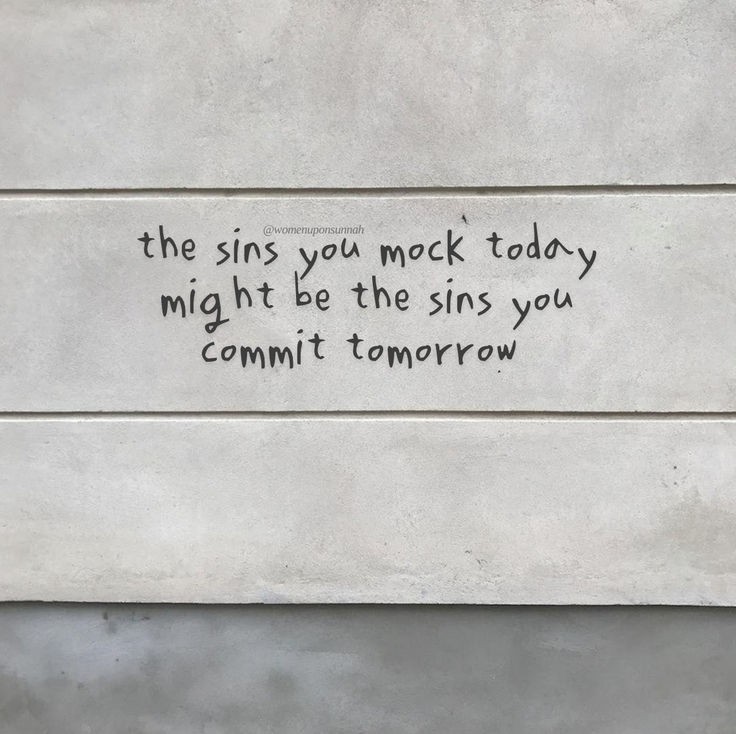 @womenuponsunnah
the sins you mock today
might be the sins you
commit tomorrow